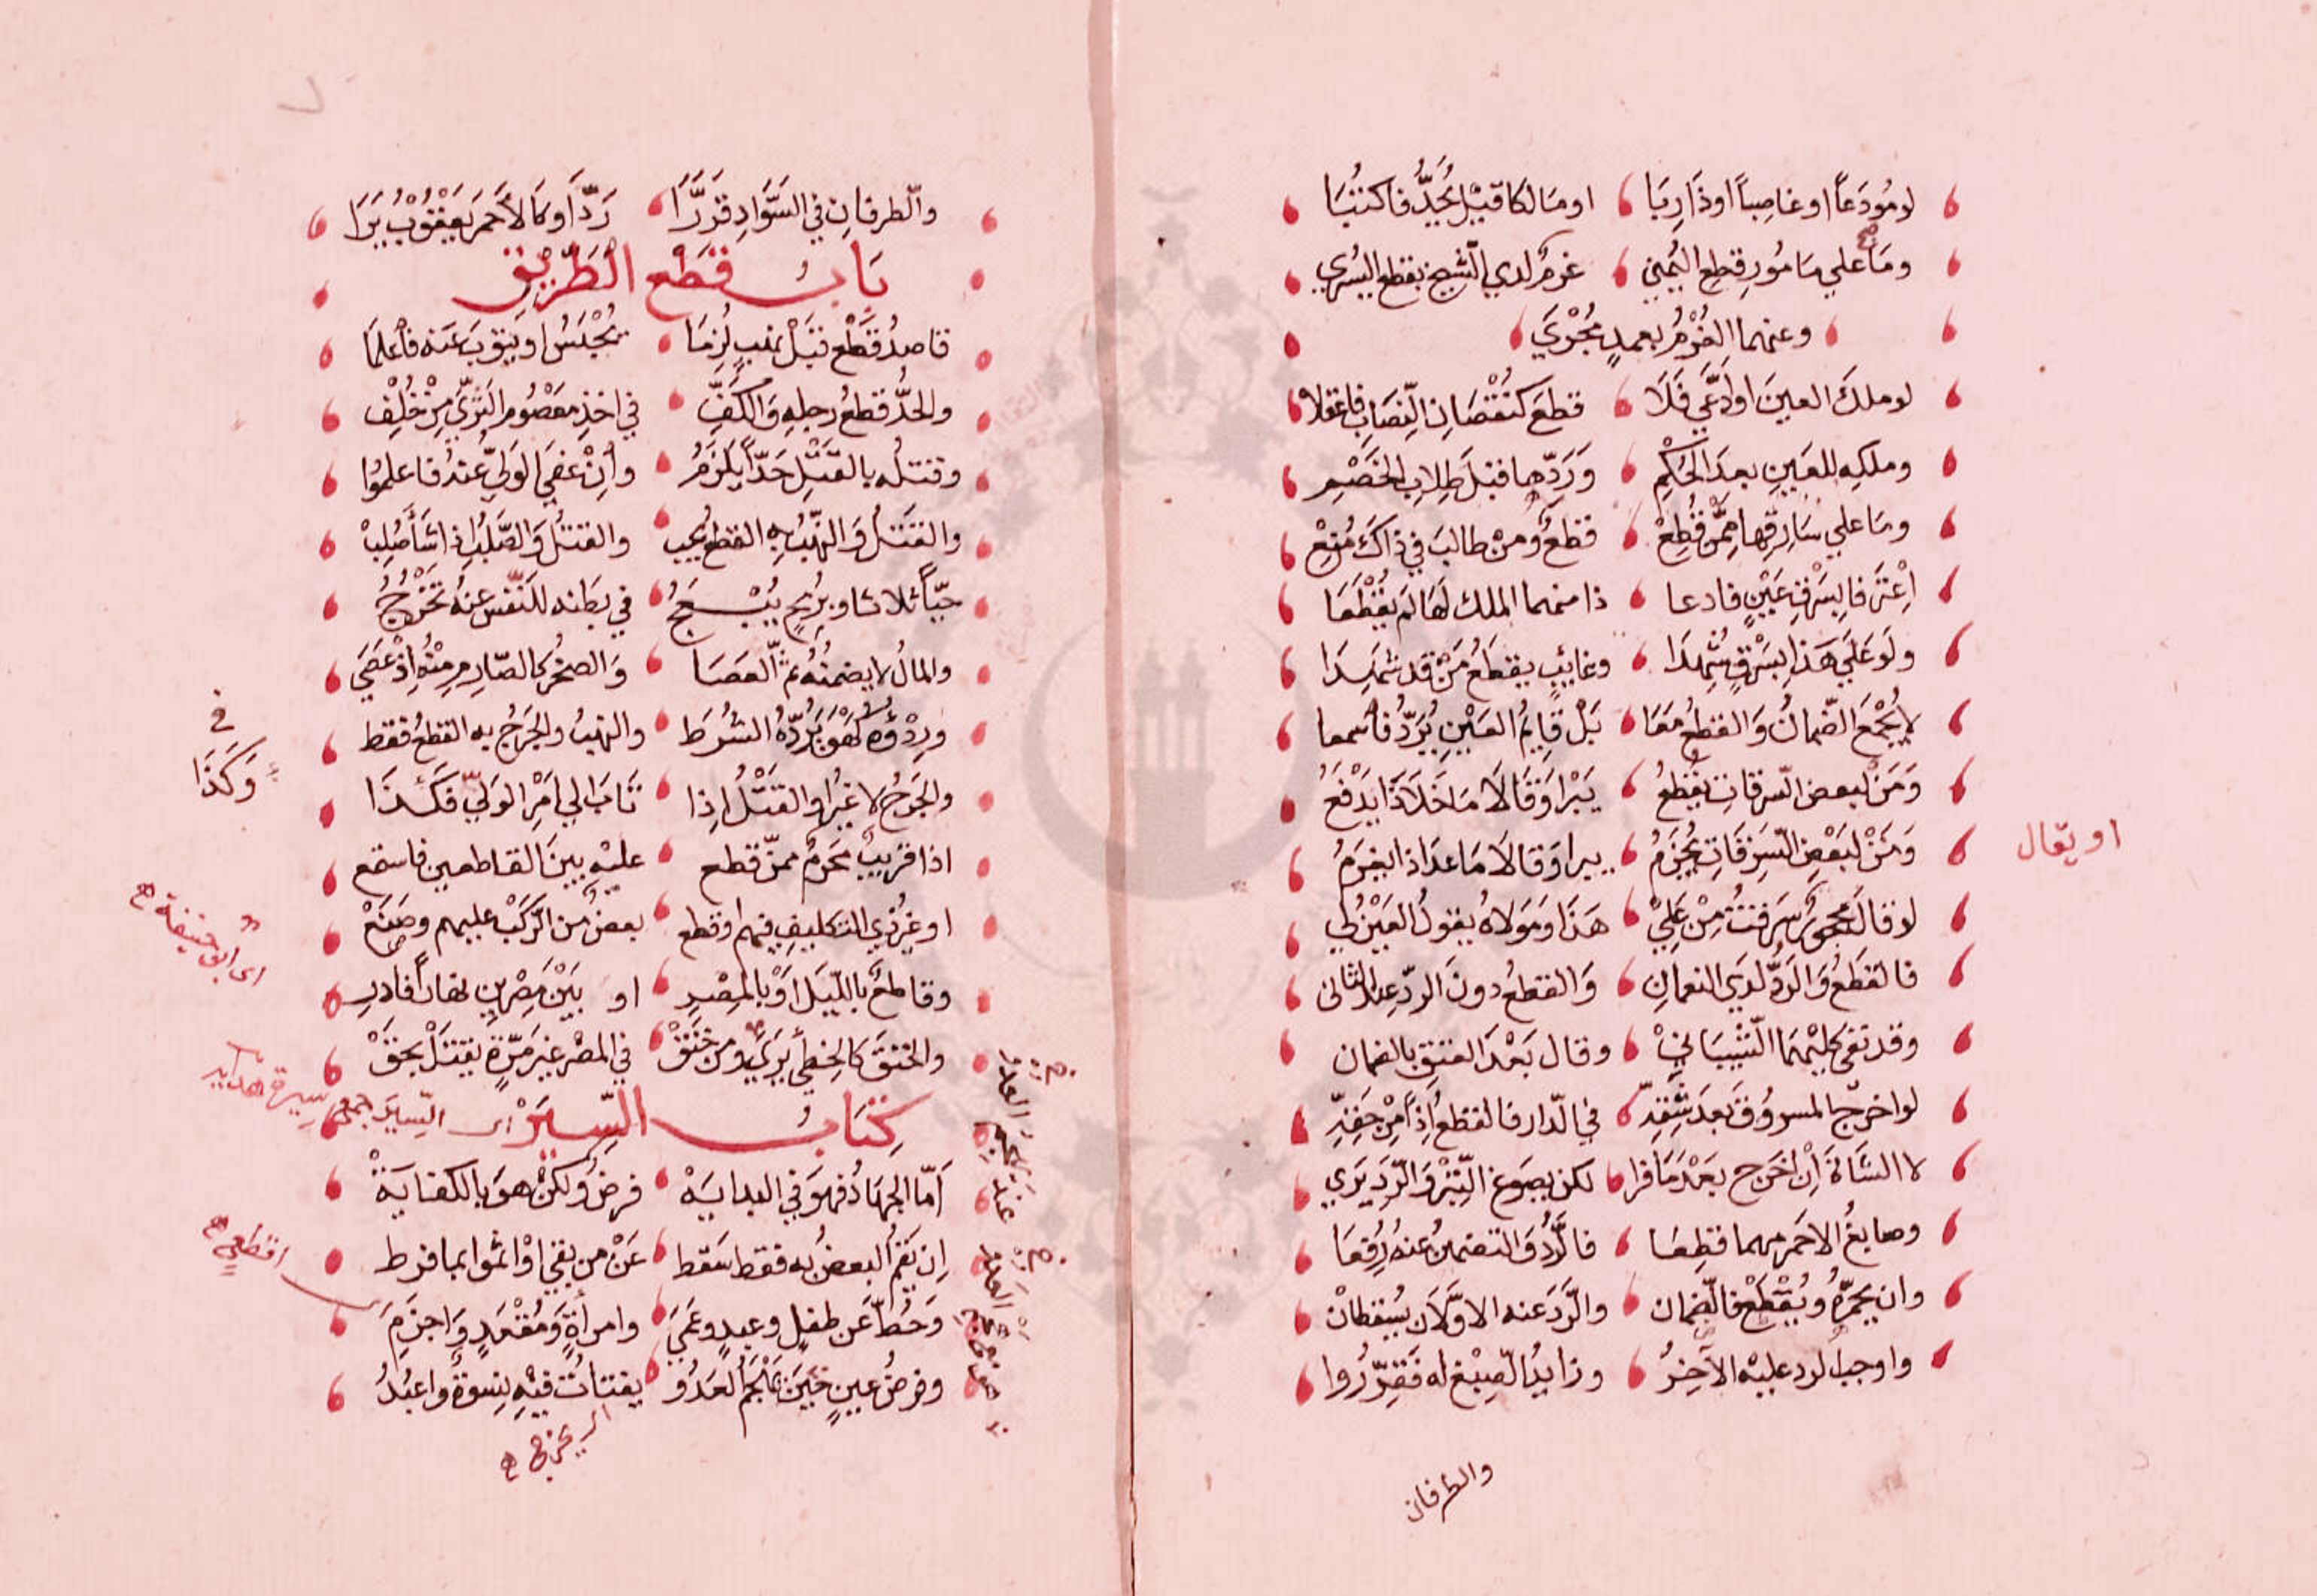 لو مُودَعاً او غاصِباً او ذا رِبَا او مَالكا قبيْل يُجَدُّ فاكتُبَا
ومَا علي مَامُورِ قطعِ اليُمني غرمٌ لدي الشيخ بقطع اليُسري
وعنهما الغُرْمُ بعمدٍ مُجْرَي
لو ملكَ العينَ او ادَّعَي فَلَا قطعَ كنُقْصَانِ النِّصَابِ فاعقلا
وملكِه للعَينِ بعدَ الحُكْمِ وَرَدِّها قبْلَ طِلابِ الخَصْمِ
ومَا علي سَارِقها مِمَّنْ قُطِعْ قطعٌ ومنْ طالبَ في ذاكَ مُنِعْ
اِعْتَرَفا بِسَرْقِ عَيْنٍ فادعا ذا منهما الملك لهَا لم يُقْطَعَا
ولَو عَلَي هَذا بِسَرْقٍ شُهِدَا وغايبٍ يقطعُ مَنْ قد شهدَا
لا يُجْمَعَ الضّمانُ وَالقطعُ مَعَا بَلْ قايِمُ العَيْنِ يُرَدُّ فاسْمعا
وَمَنْ لبعض السّرقاتِ يُقطعُ يَبْرا وَقَالَا مَا خَلَا ذَا يَدْفَعُ
وَمَنْ لبَعْضِ السَّرِقَاتِ يُجْزَمُ يبرا وَقالَا مَا عدَا ذا يغرَمُ
او يقال
لو قالَ محجورٌ سَرقتُ مِنْ عَلِيْ هَذَا وَمَولاهُ يقولُ العَيْنُ لي
فالقَطعُ وَالرَدُّ لدَي النعمانِ وَالقطعُ دونَ الردِّ عند الثاني
وقد نفي كليْهمَا الشّيْبَاني وقال بَعْدَ العتق بالضمان
لو اخرج المسروُقَ بعدَ شَقِّه في الدّار فالقطعُ اِذاً مِنْ حَقِّه
لا الشَاةَ اِنْ اخرَج بعْدَ مَا فرا لكن بصَوغ التِّبْرِ وَالرّدِ يَري
وصابغُ الاحمر مهما قطِعَا فالرَّدُ وَالتضمينُ عنهُ رُفِعَا
وان يحمرّهُ ويُقْطَعْ فالضّمان والرَّدَ عنه الاوَّلَانِ يُسقطانْ
واوجبَ الرد عليْه الآخِرُ وزايدُ الصِبْغِ له فَقرِّرُوا
والطرفان
والطرفانِ في السَّوَادِ قَرَّرَا رَدّاً وكَالأحمَرِ يَعْقُوْبُ يَرَا
بَابُ قَطْعِ الطَّرِيْقِ
قاصدُ قَطْعٍ قبْلَ نهبٍ لُزِمَا بحْبسٍ او يَتوْبَ عَنه فاعْلمَا
والحدُّ قطعُ رجلِهِ وَالكَفِّ في اخذِ مَعْصُومِ البَرِيّ مِنْ خُلْفِ
وقتلُه بالقَتْلِ حَدّاً يَلزَمُ وأِنْ عفي الوَليُّ عنهُ فاعلمُوا
والقتْلُ وَالنَّهْبُ بِهِ القطعُ يجب والقتلُ وَالصَّلبُ اِذا شَأَ صُلِبْ
حَيّاً ثلاثا وبرُمْحٍ يُبْعَجُ في بَطنه للنَفْسِ عنهُ تَخْرُجُ
والمالُ لا يضمنُهُ ثمّ العَصَا وَالصخرُ كالصّارِمِ مِنْهُ اِذْ عَصَي
ورِدْؤُهُ كَهْوَ بَرَدِّهُ الشُرَط والنهبُ والجَرحُ به القطعُ فقط
والجَرحُ لا غيْرُ او القتْلُ اِذا تَابَ الي امْرِ الوَليّ فكَذا
في
وَكَذَا
اذا قريبٌ مَحرمٌ ممَّن قطع عليهِ بينَ القاطعين فاستمع
او غيرُ ذي التكليفِ فيهم او قطع بعضٌ من الرَّكْبِ عليهم وصَنَعْ
اى ابو حنيفة
وقاطعٌ بالليْلِ اوْ بالمِصْرِ او بَيْنَ مِصْريْنِ نهاراً فادر
والخنْقَ كالخِطأ يَرَي ومن خَنَقْ في المصْر غيرَ مَرّةٍ يقتَلْ بحَقْ
كِتَابُ السِّيَرْ
اى السِّيَر جمع سيرة
اَمّا الجهَادُ فهوَ في البدايَهْ فرضٌ ولكنْ هوَ بالكفايَةْ
اِن يَقُم البعضُ به فقط سَقط عَنْ من بقي اوْ اثموا بما فرط
اقطع
وَحُطَّ عَن طفلٍ وعبدٍ وعَمَي وامرأةٍ وَمُقْعَدٍ وَاجذَمِ
وفرضُ عينٍ حَيْنَ يَهْجُمُ العَدُوُ يقتاتُ فيْهِ نِسوةٌ واعبُدُ